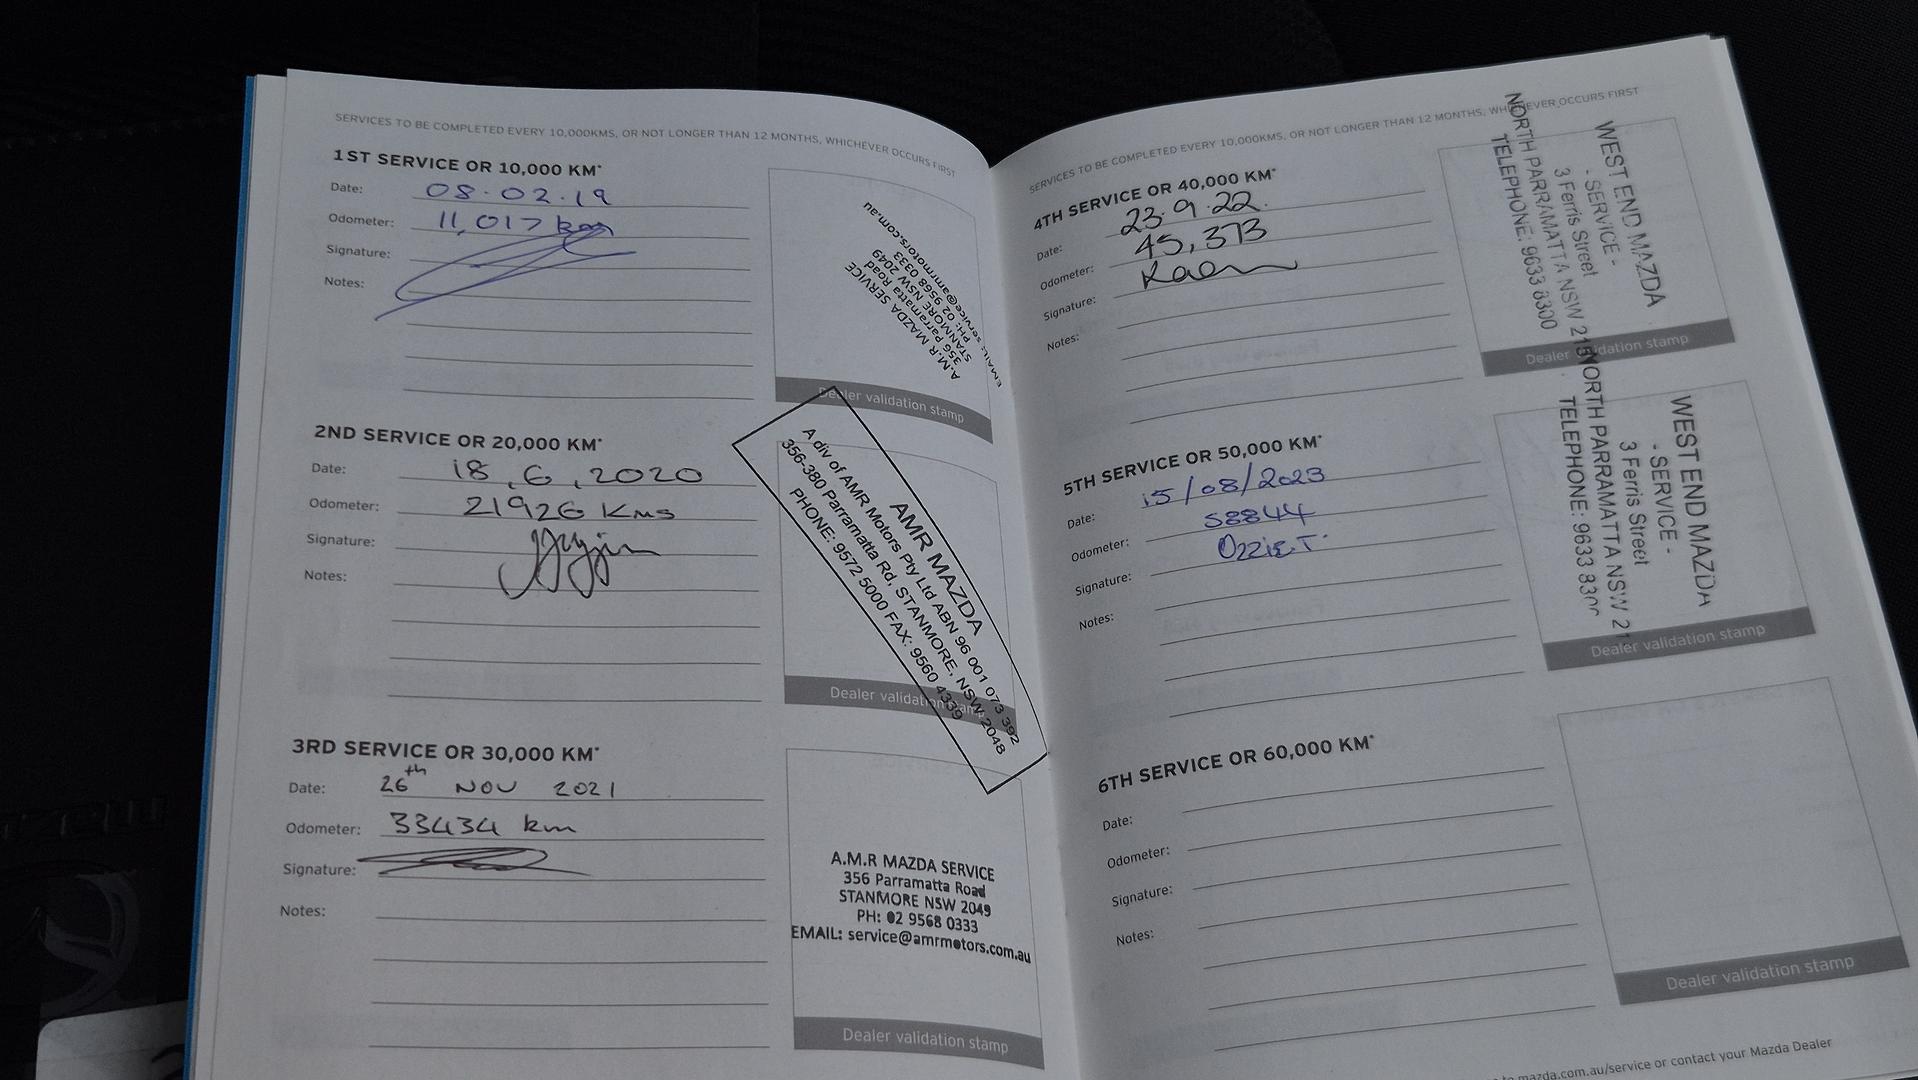 SERVICES TO BE COMPLETED EVERY 10,000KMS, OR NOT LONGER THAN 12 MONTHS, WHICHEVER OCCURS FIRST
1ST SERVICE OR 10,000 KM*
Date: 08.02.19
Odometer: 11,017 km
Signature:
Notes:
A.M.R MAZDA SERVICE
356 Parramatta Road
STANMORE NSW 2049
PH: 02 9568 0333
EMAIL: service@amrmotors.com.au
Dealer validation stamp
2ND SERVICE OR 20,000 KM*
Date: 18,6,2020
Odometer: 21926 Kms
Signature:
Notes:
AMR MAZDA
A div of AMR Motors Pty Ltd ABN 96 001 073 392
356-380 Parramatta Rd, STANMORE, NSW 2048
PHONE: 9572 5000 FAX: 9560 4339
Dealer validation stamp
3RD SERVICE OR 30,000 KM*
Date: 26th NOV 2021
Odometer: 33434 km
Signature:
Notes:
A.M.R MAZDA SERVICE
356 Parramatta Road
STANMORE NSW 2049
PH: 02 9568 0333
EMAIL: service@amrmotors.com.au
Dealer validation stamp
SERVICES TO BE COMPLETED EVERY 10,000KMS, OR NOT LONGER THAN 12 MONTHS, WHICHEVER OCCURS FIRST
4TH SERVICE OR 40,000 KM*
Date: 23.9.22.
Odometer: 45,373
Signature:
Notes:
WEST END MAZDA
- SERVICE -
3 Ferris Street
NORTH PARRAMATTA NSW 21
TELEPHONE: 9633 8300
Dealer validation stamp
5TH SERVICE OR 50,000 KM*
Date: 15/08/2023
Odometer: 58844
Signature: Ozzie.T.
Notes:
WEST END MAZDA
- SERVICE -
3 Ferris Street
NORTH PARRAMATTA NSW 21
TELEPHONE: 9633 8300
Dealer validation stamp
6TH SERVICE OR 60,000 KM*
Date:
Odometer:
Signature:
Notes:
Dealer validation stamp
mazda.com.au/service or contact your Mazda Dealer